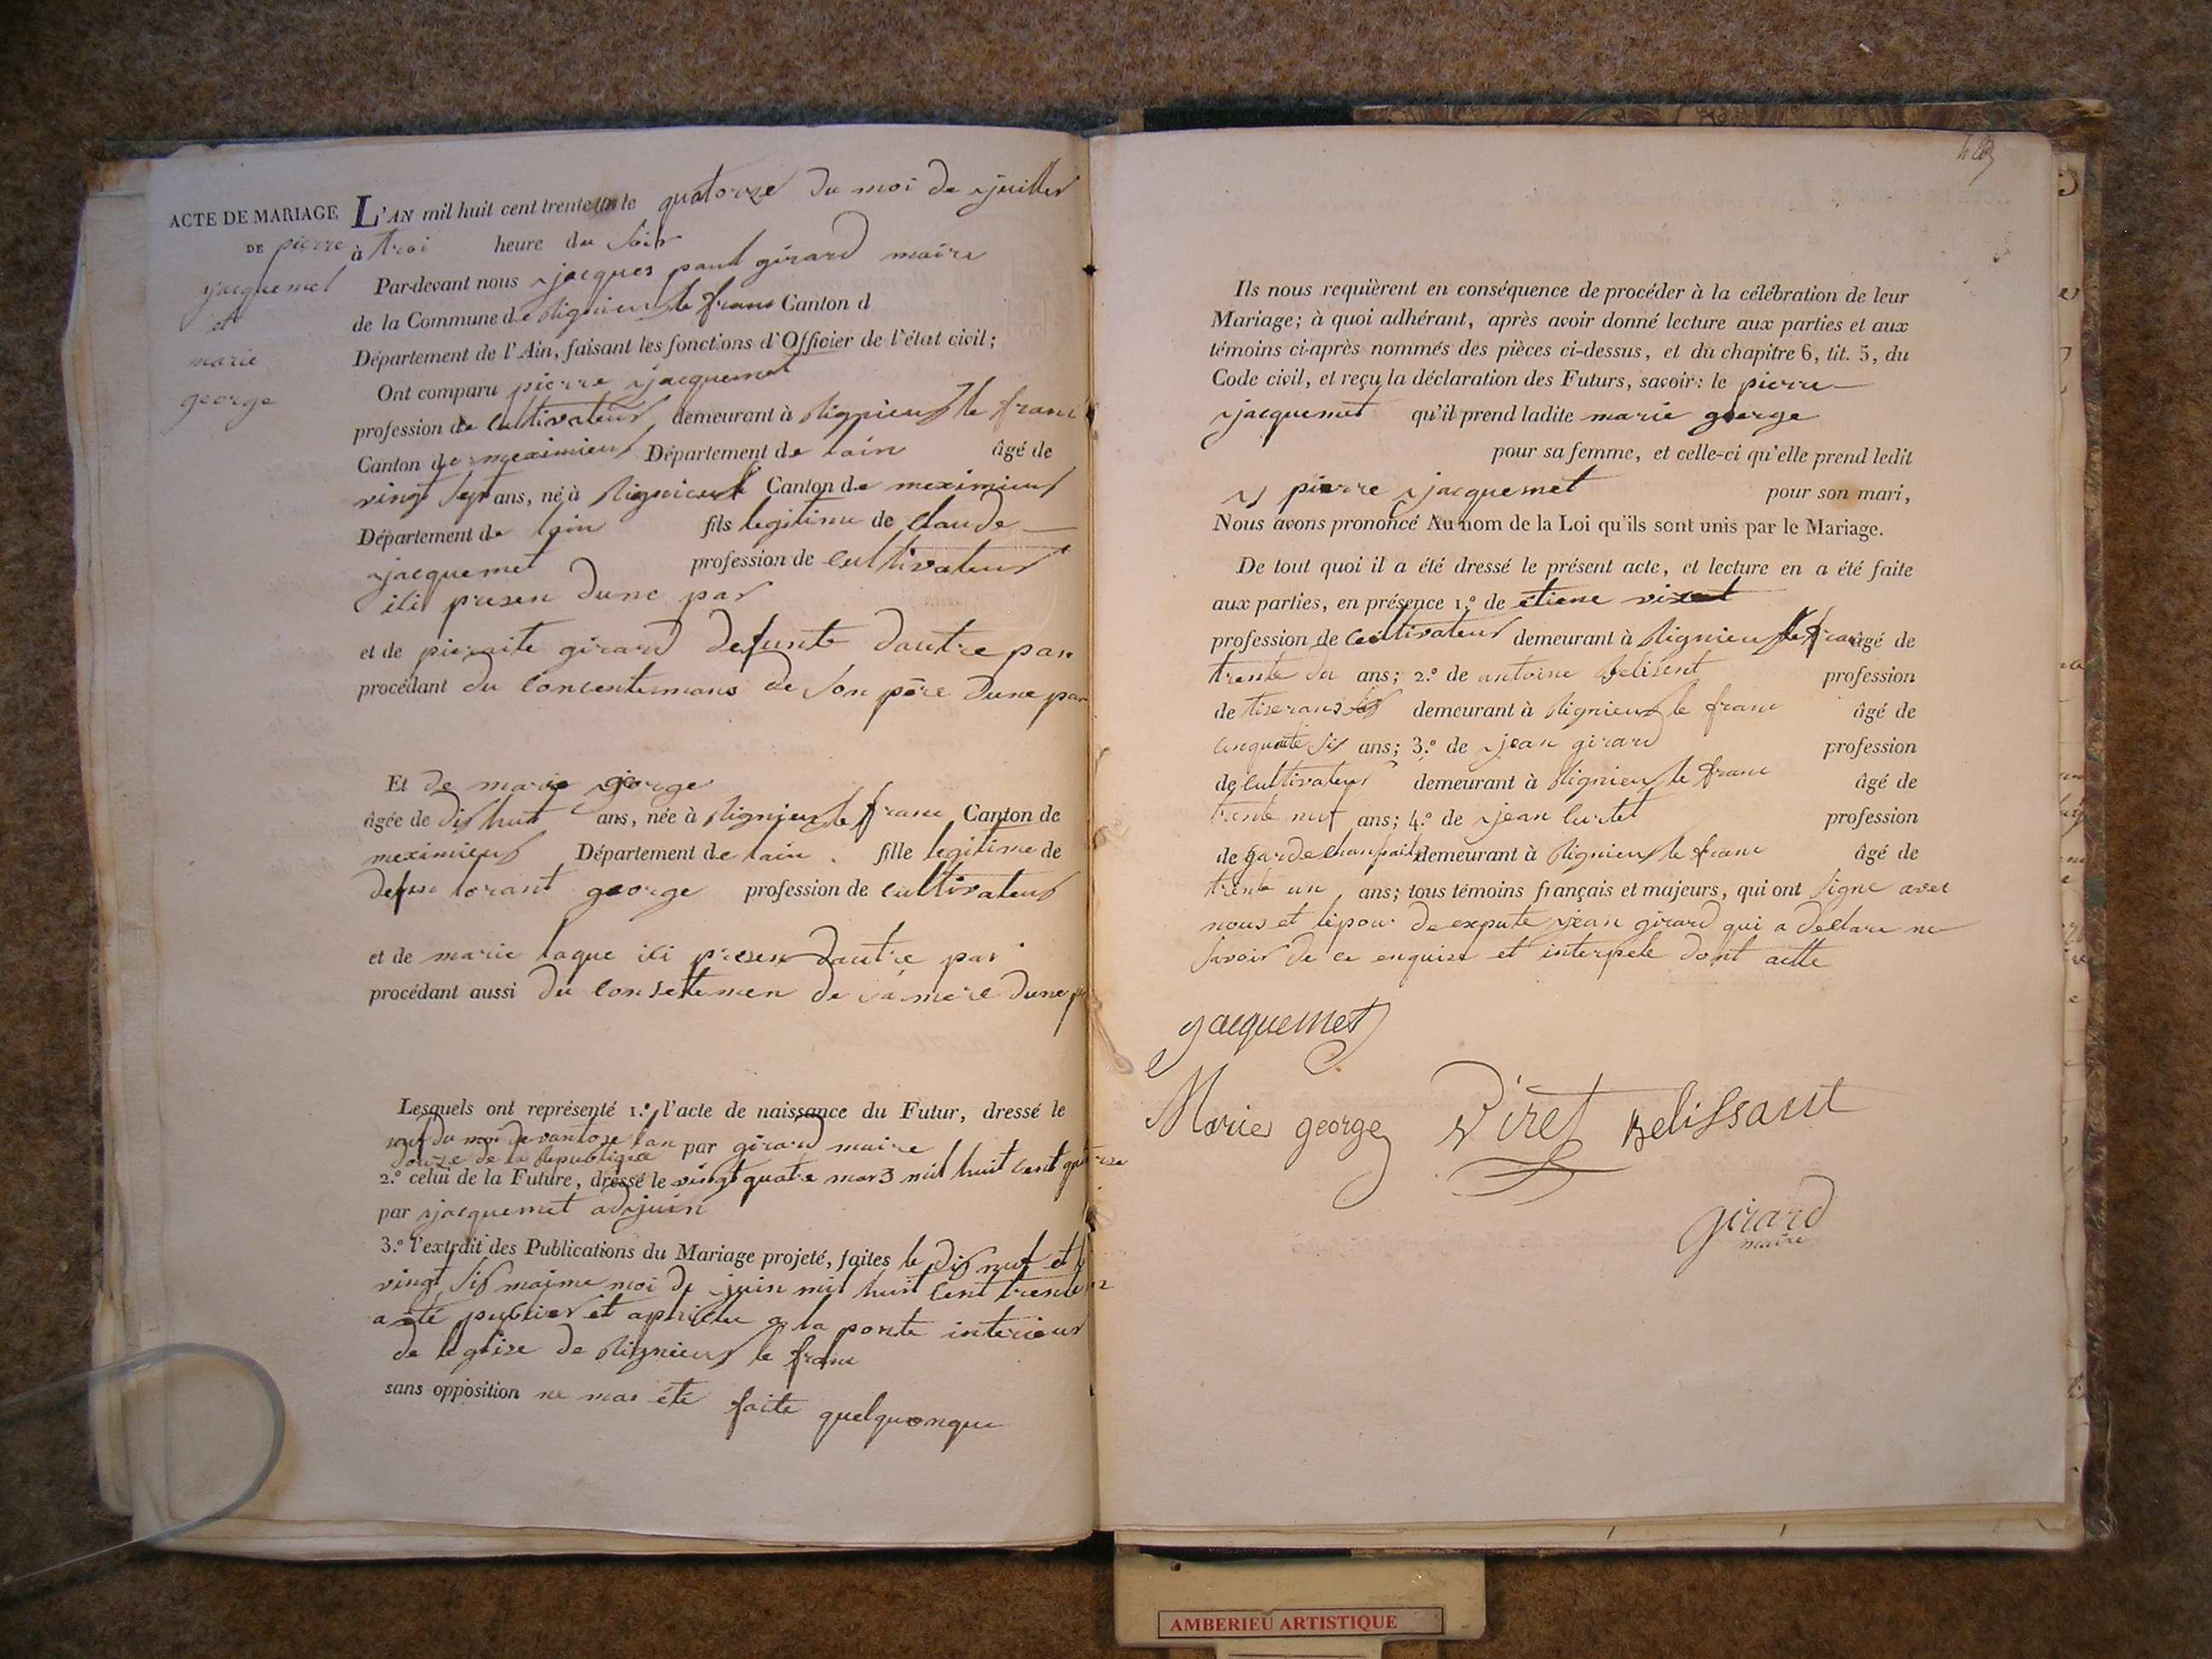 ACTE DE MARIAGE
DE pierre
jacquemet
et
marie
george
L'AN mil huit cent trente un le quatorze du moi de juillet
à troi heure du soir
Par-devant nous jacques paul girard maire
de la Commune de Rignieux le franc Canton d
Département de l'Ain, faisant les fonctions d'Officier de l'état civil;
Ont comparu pierre jacquemet
profession de cultivateur demeurant à Rignieux le franc
Canton de meximieux Département de lain âgé de
vingt sept ans, né à Rignieux Canton de meximieux
Département de lain fils legitime de claude
jacquemet profession de cultivateur
ici presen dune par
et de pieraite girard defunte dautre par
procédant du concentemans de son père dune par
Et de marie george
âgée de dis huit ans, née à Rignieux le franc Canton de
meximieux Département de lain fille legitime de
defun lorant george profession de cultivateur
et de marie laque ici presen dautre par
procédant aussi du consettemen de sa mere dune
Lesquels ont représenté 1.° l'acte de naissance du Futur, dressé le
neuf du moi de vantose lan par girard maire
douze de la Republique
2.° celui de la Future, dressé le vingt quatre mars mil huit cent
par jacquemet adjuin
3.° l'extrait des Publications du Mariage projeté, faites le dis neuf et
vingt six maime moi de juin mil huit cent trente
a été publier et aphichu a la porte interieur
de leglise de Rignieux le franc
sans opposition ne mas été faite quelquonque
Ils nous requièrent en conséquence de procéder à la célébration de leur
Mariage; à quoi adhérant, après avoir donné lecture aux parties et aux
témoins ci-après nommés des pièces ci-dessus, et du chapitre 6, tit. 5, du
Code civil, et reçu la déclaration des Futurs, savoir: le pierre
jacquemet qu'il prend ladite marie george
pour sa femme, et celle-ci qu'elle prend ledit
pierre jacquemet pour son mari,
Nous avons prononcé Au nom de la Loi qu'ils sont unis par le Mariage.
De tout quoi il a été dressé le présent acte, et lecture en a été faite
aux parties, en présence 1.° de etiene viret
profession de cultivateur demeurant à Rignieux le franc âgé de
trente ans; 2.° de antoine Belisent profession
de tiserans demeurant à Rignieux le franc âgé de
cinquate six ans; 3.° de jean girard profession
de cultivateur demeurant à Rignieux le franc âgé de
trente neuf ans; 4.° de jean curtet profession
de garde chanpait demeurant à Rignieux le franc âgé de
trente un ans; tous témoins français et majeurs, qui ont signe avec
nous et lepou de expute jean girard qui a declare ne
savoir de ce enquise et interpele dont actte
jacquemet
Marie george Viret Belissant
girard
maire
AMBERIEU ARTISTIQUE